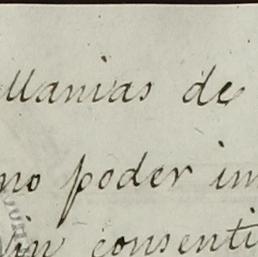 Manias de
no poder im
sin consenti